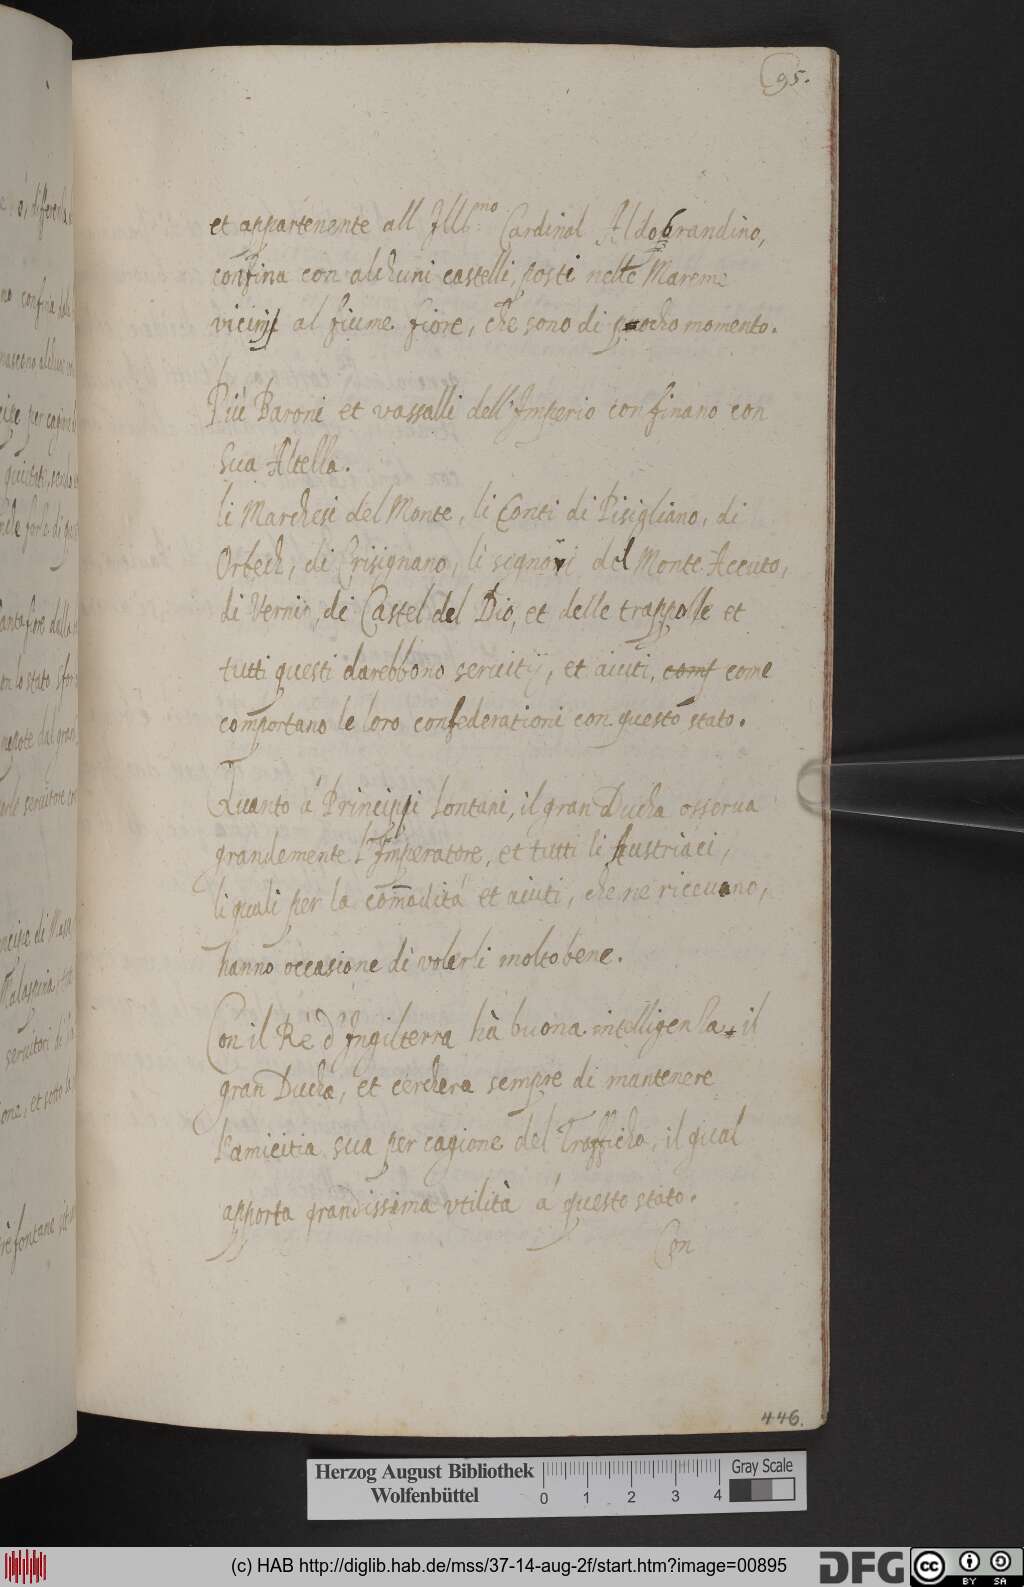 95.
et appartenente all Illmo: Cardinal Aldobrandino,
confina con alchuni castelli, posti nelle Mareme
vicini al fiume fiore, che sono di puocho momento.
Più Baroni et vassalli dell'Imperio confinano con
Sua Altella.
li Marchesi del Monte, li Conti di Pisigliano, di
Orbech, di Crisignano, li signori del Monte Accuto,
di Vernio, di Castel del Dio, et delle trappolle et
tutti questi darebbono seruitij, et aiuti, come
comportano le loro confederationi con questo stato.
Quanto á Principi lontani, il gran Ducha osserua
grandemente l'Imperatore, et tutti li Austriáci,
li quali per la com̄odità et aiuti, che ne riceuano,
hanno occasione di volerli molto bene.
Con il Ré d'Ingilterra hà buona intelligenSa il
gran Ducha, et cerchera sempre di mantenere
l'amicitia sua per cagione del Trafficho, il qual
apporta grandissima vtilità á questo stato.
Con
446.
Herzog August Bibliothek
Wolfenbüttel
0 1 2 3 4
Gray Scale
(c) HAB http://diglib.hab.de/mss/37-14-aug-2f/start.htm?image=00895
DFG
cc
BY SA